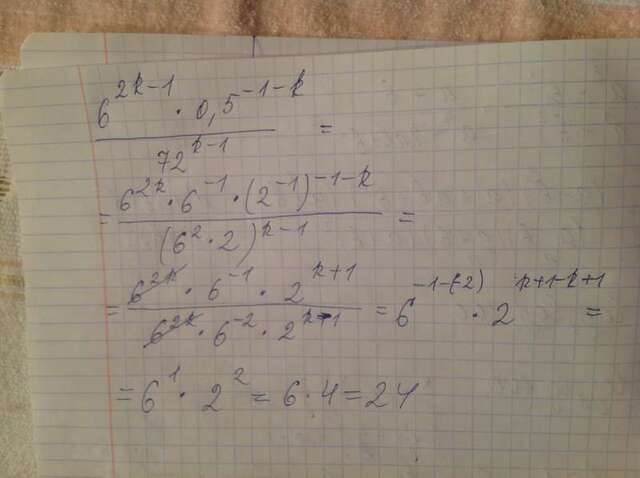 6^{2k-1} · 0,5^{-1-k}
72^{k-1} =
= 6^{2k} · 6^{-1} · (2^{-1})^{-1-k}
(6^2 · 2)^{k-1} =
= 6^{2k} · 6^{-1} · 2^{k+1}
6^{2k} · 6^{-2} · 2^{k-1} = 6^{-1-(-2)} · 2^{k+1-k+1} =
= 6^1 · 2^2 = 6 · 4 = 24